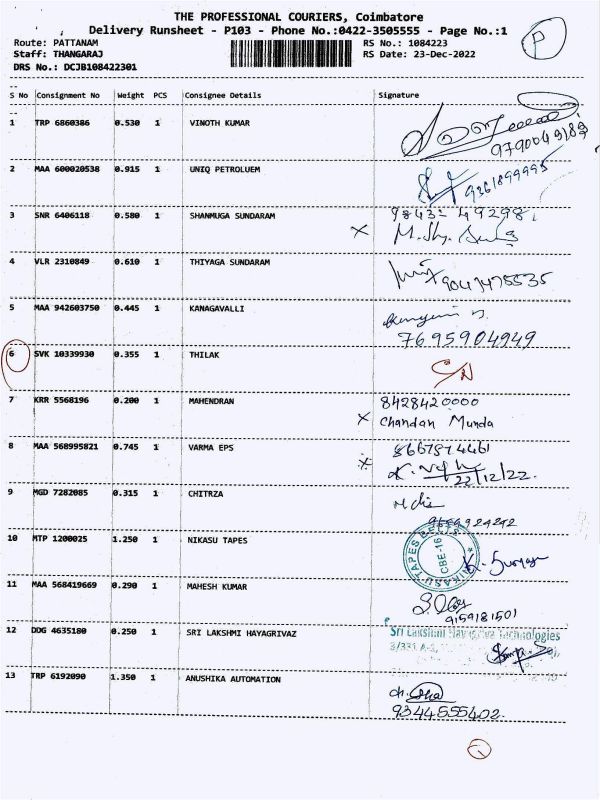 THE PROFESSIONAL COURIERS, Coimbatore
Delivery Runsheet - P103 - Phone No.:0422-3505555 - Page No.:1
P
Route: PATTANAM RS No.: 1084223
Staff: THANGARAJ RS Date: 23-Dec-2022
DRS No.: DCJB108422301
S No Consignment No Weight PCS Consignee Details Signature
1 TRP 6860386 0.530 1 VINOTH KUMAR
9790049189
2 MAA 600020538 0.915 1 UNIQ PETROLUEM
9361899995
3 SNR 6406118 0.580 1 SHANMUGA SUNDARAM 98432 49298
4 VLR 2310849 0.610 1 THIYAGA SUNDARAM
9047475535
5 MAA 942603750 0.445 1 KANAGAVALLI
7695904949
6 SVK 10339930 0.355 1 THILAK
C/N
7 KRR 5568196 0.200 1 MAHENDRAN 8428420000
x Chandan Munda
8 MAA 568995821 0.745 1 VARMA EPS
22/12/22.
9 MGD 7282085 0.315 1 CHITRZA
10 MTP 1200025 1.250 1 NIKASU TAPES
NIKASU TAPES CBE-16
11 MAA 568419669 0.290 1 MAHESH KUMAR
9159181501
12 DDG 4635180 0.250 1 SRI LAKSHMI HAYAGRIVAZ Sri Lakshmi Hayagriva Technologies
3/331 A-2,
13 TRP 6192090 1.350 1 ANUSHIKA AUTOMATION
9344555402